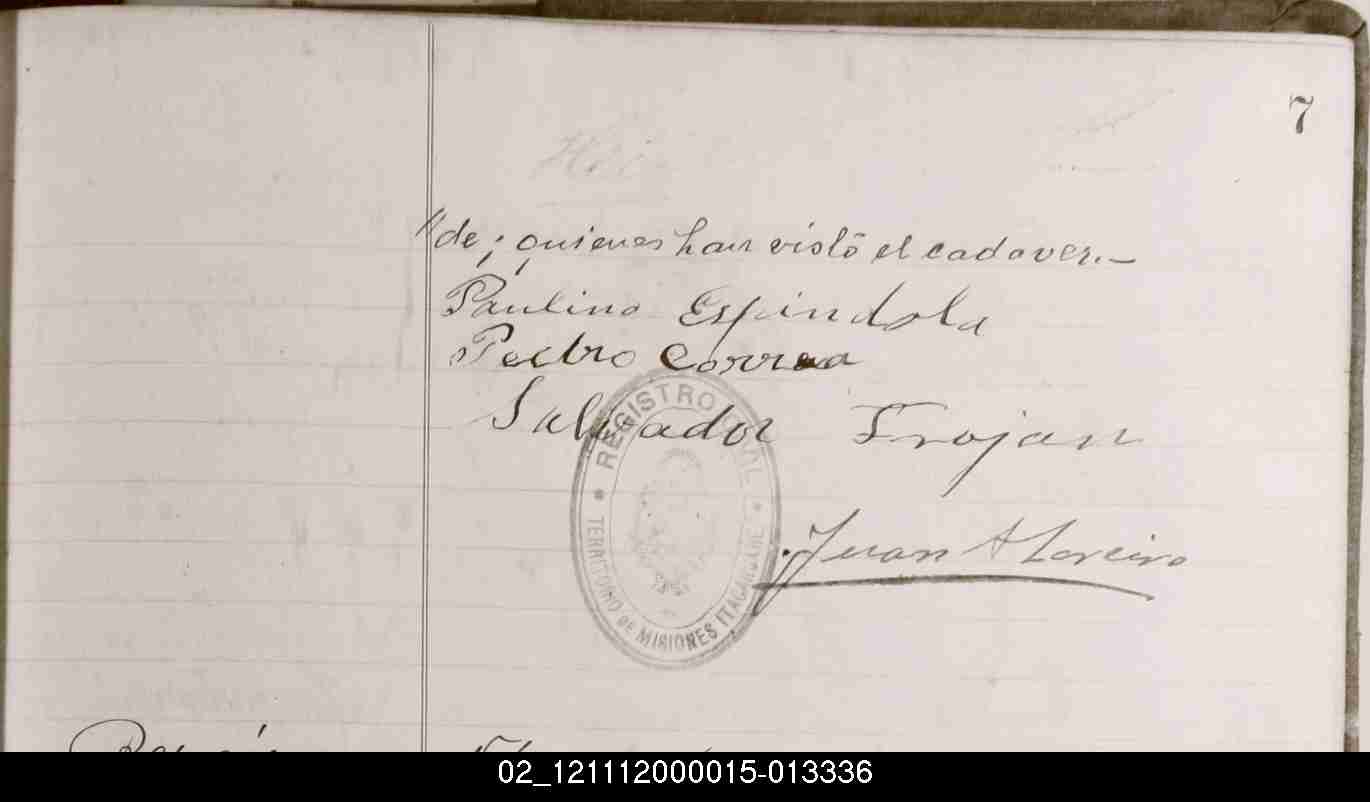 7
"de; quienes han visto el cadaver.—
Paulino Espindola
Pedro Correa
Salvador Trojan
Juan
REGISTRO CIVIL
TERRITORIO DE MISIONES ITACARUARE
02_121112000015-013336